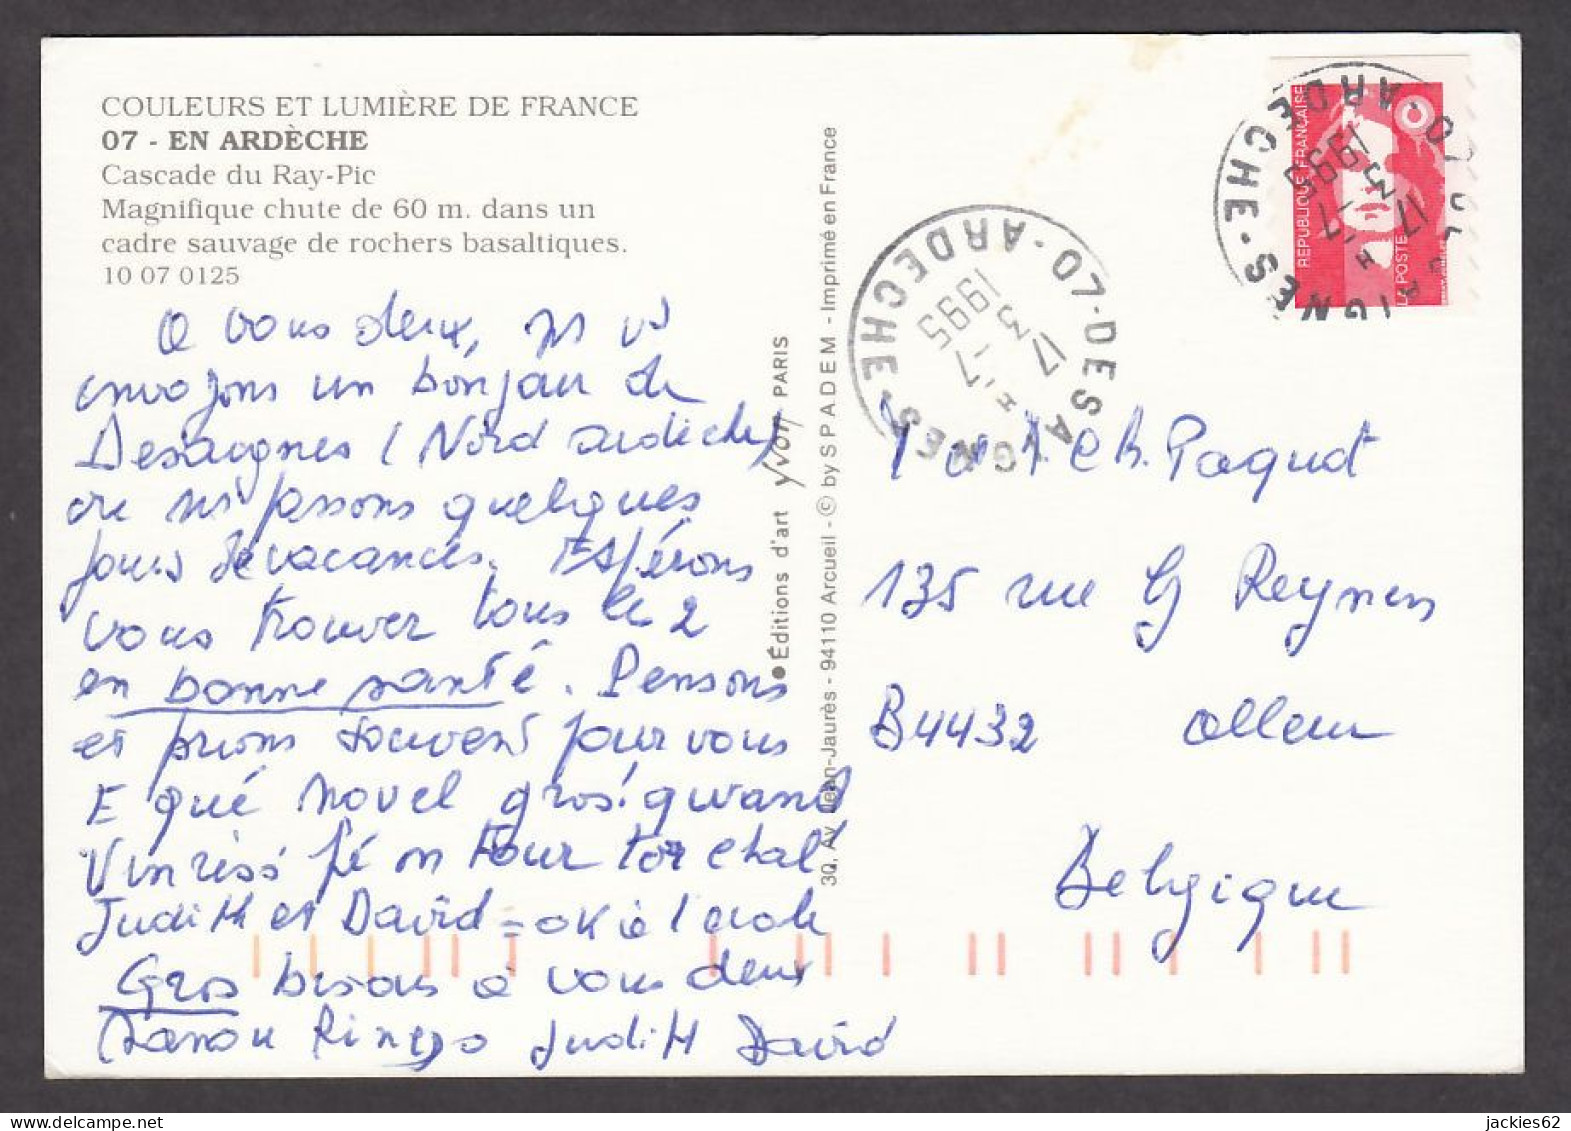 COULEURS ET LUMIÈRE DE FRANCE
07 - EN ARDÈCHE
Cascade du Ray-Pic
Magnifique chute de 60 m. dans un
cadre sauvage de rochers basaltiques.
10 07 0125
A vous deux, ns vs
envoyons un bonjour de
Desaignes (Nord ardèche)
où ns passons quelques
jours de vacances. Espérons
vous trouver tous le 2
en bonne santé. Pensons
et prions souvent pour vous
E qué novel gros! qwand
Vinrèss' fé on tour tot
Judith et David = OK à l'école
Gros bisous à vous deux
Ringo Judith David
●Éditions d'art Yvon PARIS
30, Av. Jean-Jaurès - 94110 Arcueil - © by SPADEM - Imprimé en France
07-DESAIGNES-ARDECHE
17 H
17 3
1995
REPUBLIQUE FRANÇAISE
LA POSTE
07-DESAIGNES-ARDECHE
17 H
17 3
1995
Paquot
135 rue G Reynen
B4432 Alleur
Belgique
jackies62